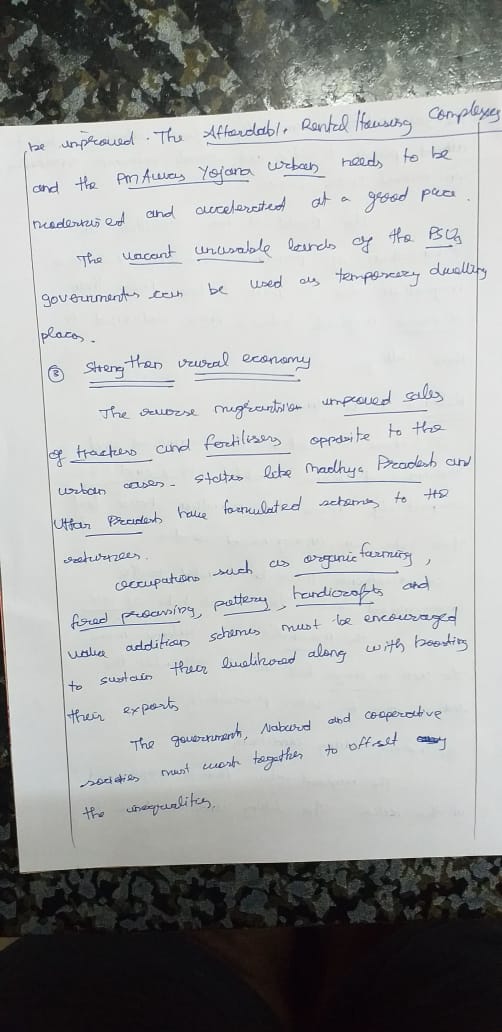 be improved. The Affordable Rental Housing Complexes
and the PM Awas Yojana urban needs to be
modernised and accelerated at a good pace.
The vacant unusable lands of the
governments can be used as temporary dwelling
places.
③ Strengthen rural economy
The reverse migration improved sales
of tractors and fertilisers opposite to the
urban areas. States like Madhya Pradesh and
Uttar Pradesh have formulated schemes to the
returnees.
Occupations such as organic farming,
food processing, pottery, handicrafts and
value addition schemes must be encouraged
to sustain their livelihood along with boosting
their exports
The government, Nabard and cooperative
societies must work together to offset
the inequalities.